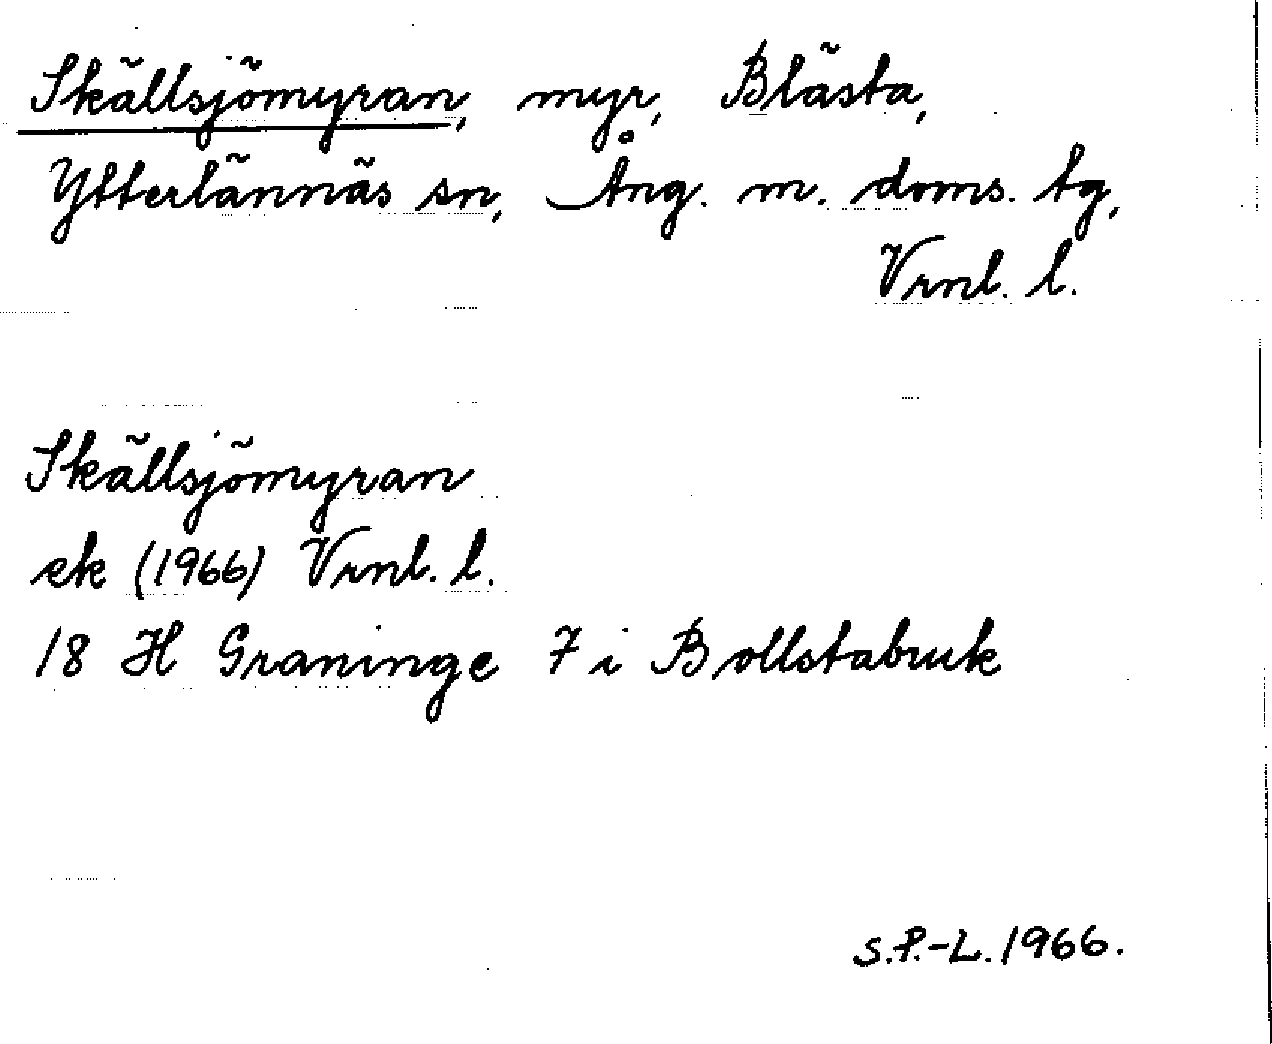 Skällsjömyran, myr, Blästa,
Ytterlännäs sn, Ång. m. doms. tg,
Vrnl. l.
Skällsjömyran
ek (1966) Vrnl. l.
18 H Graninge 7 i Bollstabruk
S.P.-L. 1966.